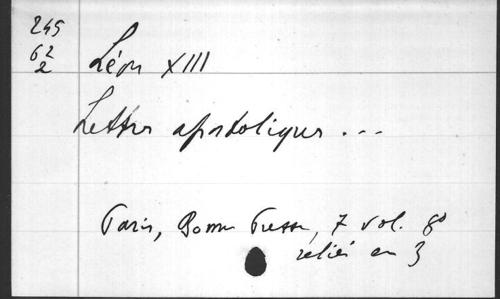 245
62
2
Léon XIII
Lettres apostoliques ...
Paris, Bonne Presse, 7 vol. 8°
reliés en 3